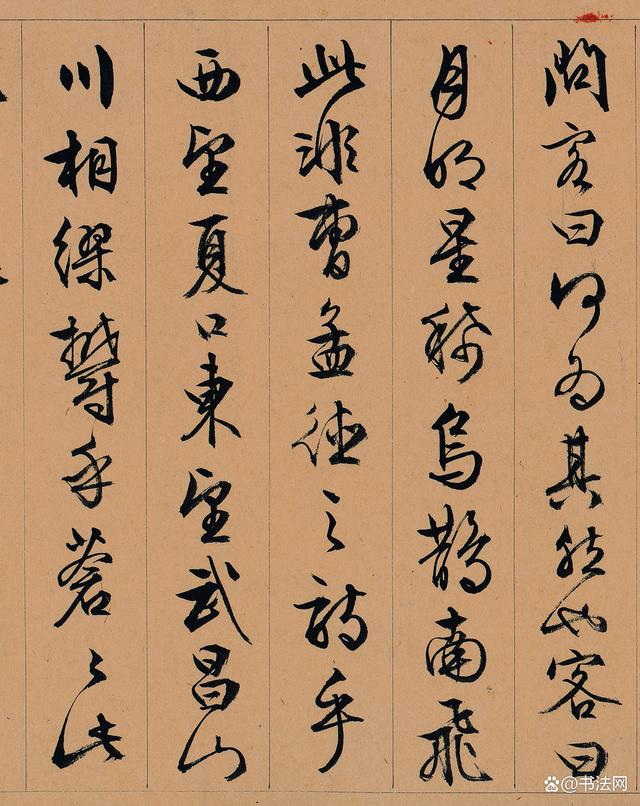 問客曰何為其然也客曰
月明星稀烏鵲南飛
此非曹孟德之詩乎
西望夏口東望武昌山
川相繆鬱乎蒼〻此
@书法网